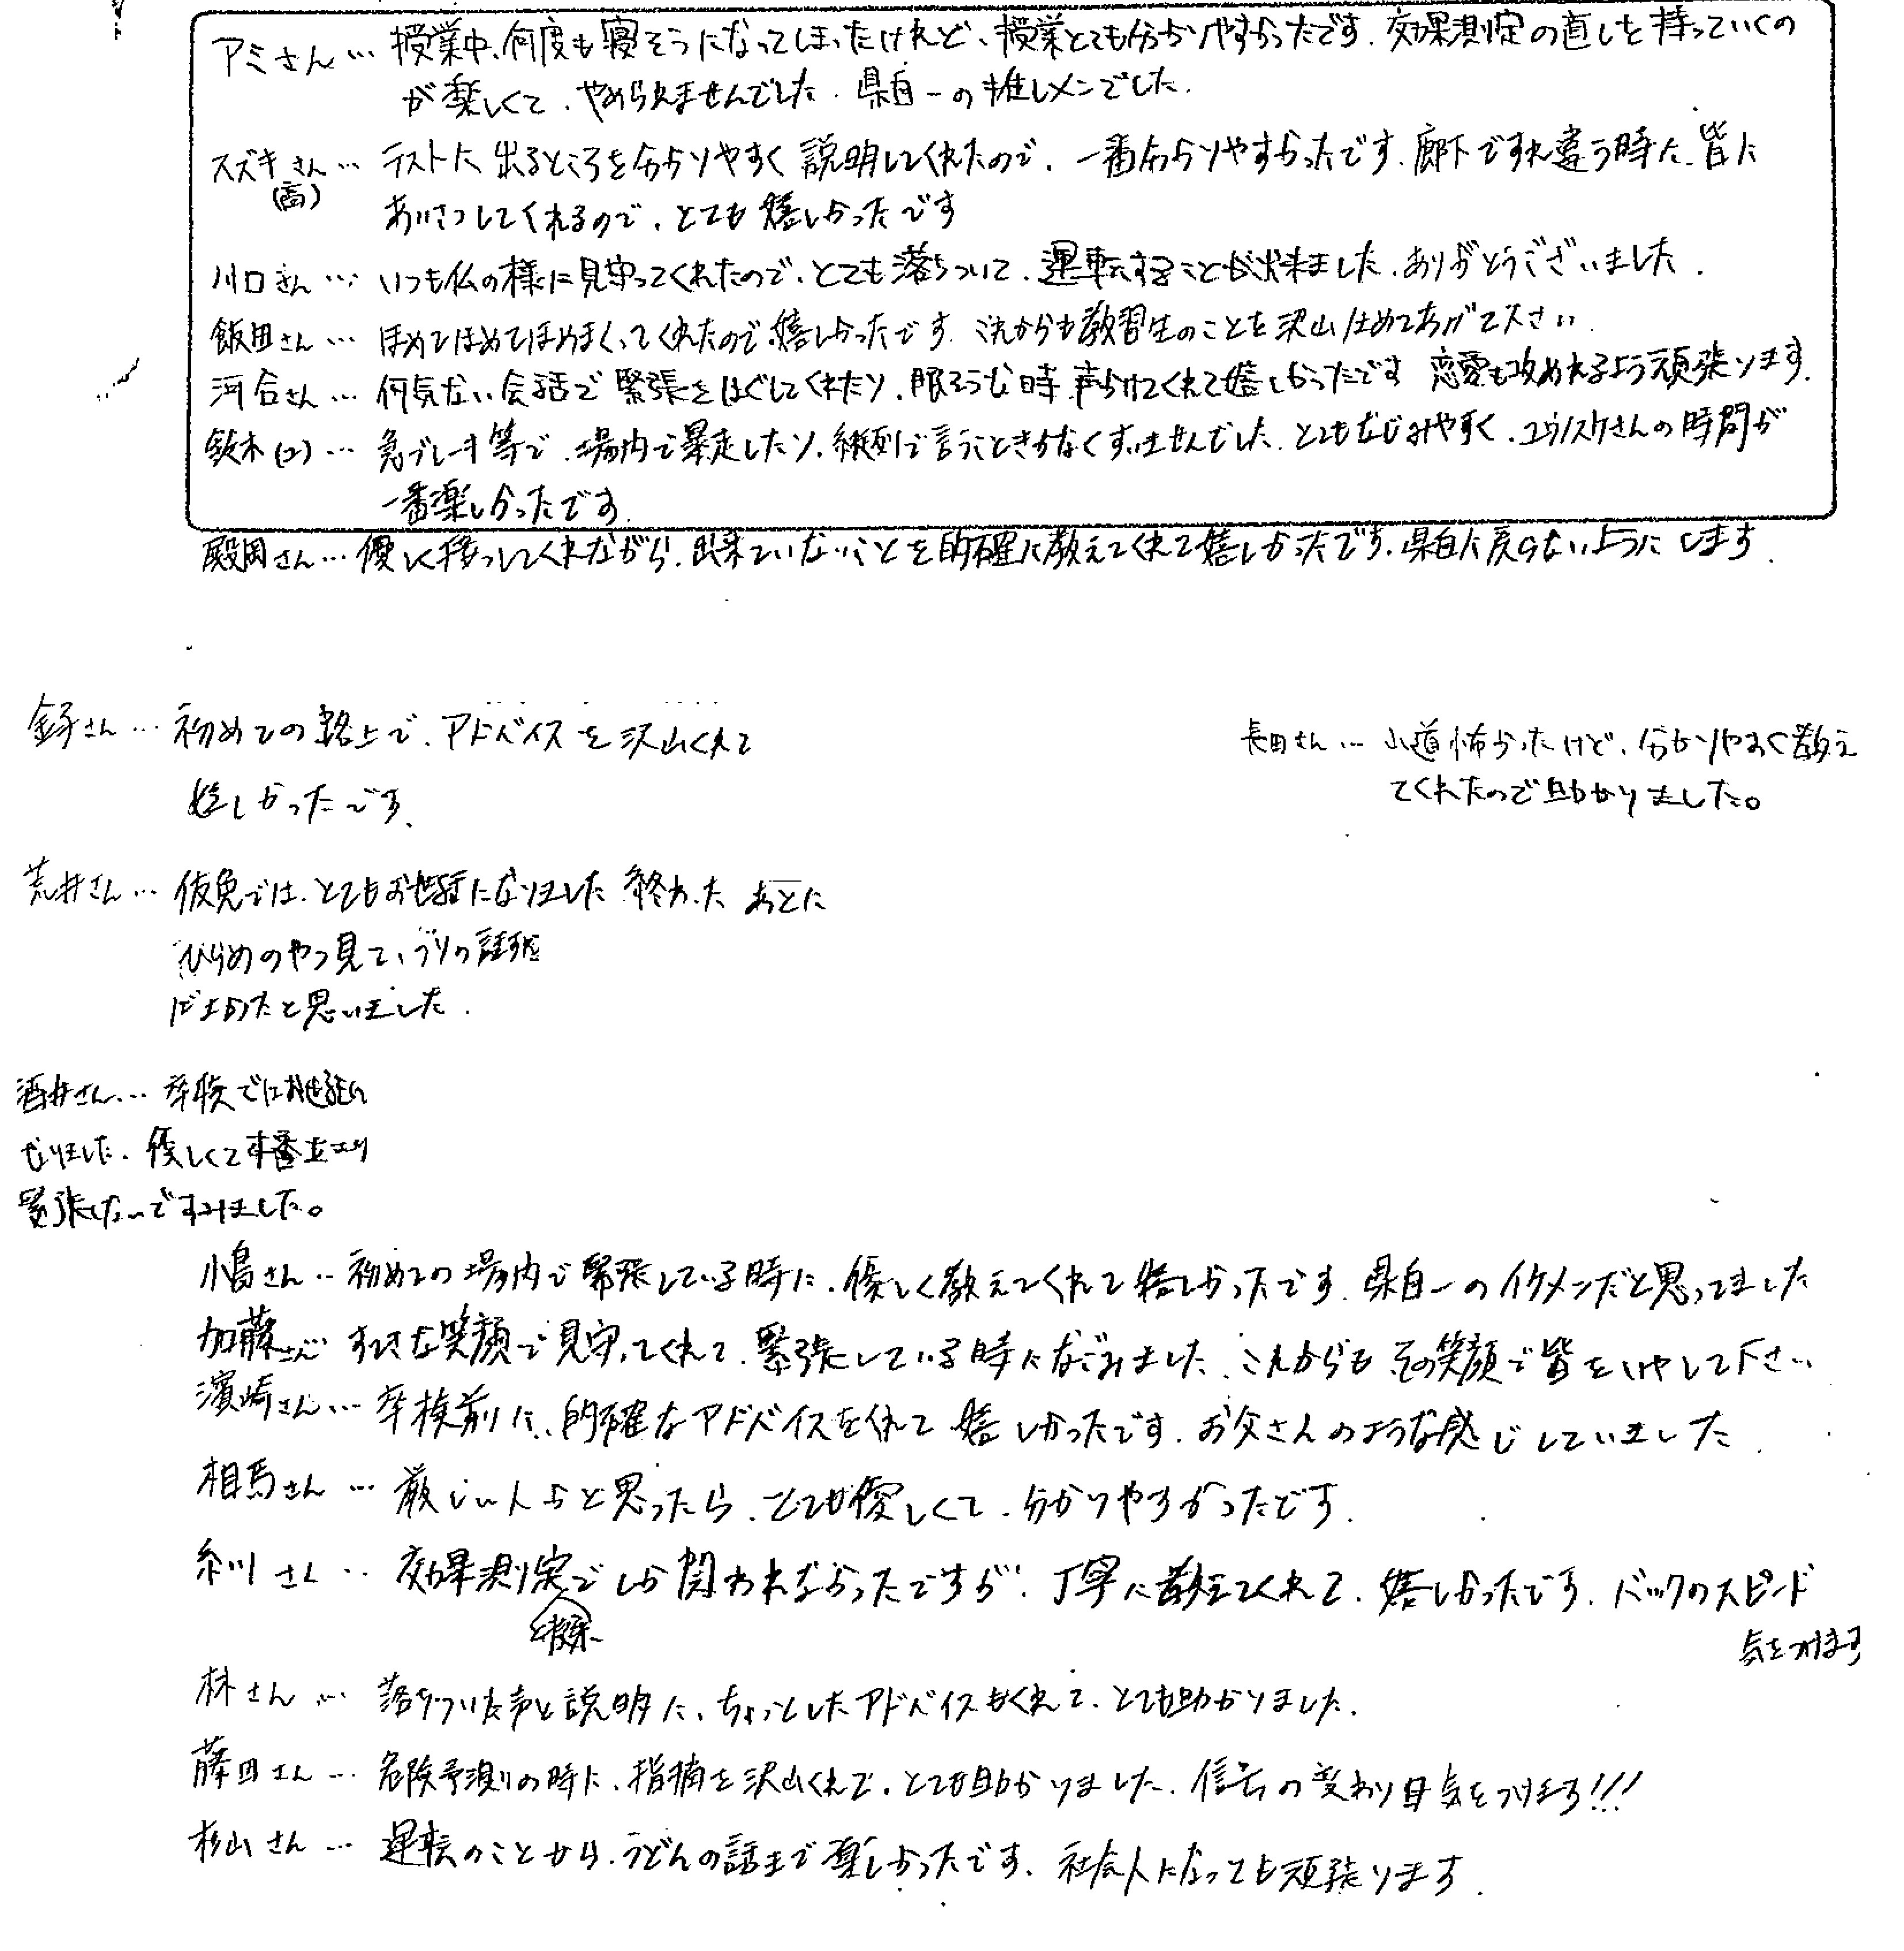 アミさん… 授業中、何度も寝そうになってしまったけれど、授業とても分かりやすかったです。効果測定の直しを持っていくの
が楽しくて、やめられませんでした。県自一の推しメンでした。
スズキさん… テストに出るところを分かりやすく説明してくれたので、一番分かりやすかったです。廊下ですれ違う時に、皆に
(高)
あいさつしてくれるので、とても嬉しかったです
川口さん… いつも私の様に見守ってくれたので、とても落ちついて、運転することが出来ました。ありがとうございました。
飯田さん… ほめてほめてほめまくってくれたので、嬉しかったです。これからも教習生のことを沢山ほめてあげて下さい。
河合さん… 何気ない会話で緊張をほぐしてくれたり、眠そうな時、声かけてくれて嬉しかったです 恋愛も攻めれるよう頑張ります。
鈴木(ユ)… 急ブレーキ等で、場内で暴走したり、縦列で言うこときかなくすいませんでした。とてもなじみやすく、ユウスケさんの時間が
一番楽しかったです。
殿岡さん… 優しく接してくれながら、出来ていないことを的確に教えてくれて嬉しかったです。県自に戻らないようにします。
金子さん… 初めての路上で、アドバイスを沢山くれて
嬉しかったです。
長田さん… 山道怖かったけど、分かりやすく教え
てくれたので助かりました。
荒井さん… 仮免では、とてもお世話になりました 終わった あとに
ひらめのやつ見て、
と思いました。
酒井さん… 卒検ではお世話に
なりました。優しくて本番
緊張しないですみました。
小島さん… 初めての場内で緊張している時に、優しく教えてくれて嬉しかったです。県自一のイケメンだと思ってました
加藤さん… すてきな笑顔で見守ってくれて、緊張している時になごみました。これからもその笑顔で皆をいやして下さい
濱崎さん… 卒検前に、的確なアドバイスをくれて嬉しかったです。お父さんのような感じしていました。
相馬さん… 厳しい人かと思ったら、とても優しくて、分かりやすかったです。
糸川さん… 効果測定でしか関われなかったですが、丁寧に教えてくれて、嬉しかったです。バックのスピード
気をつけます
林さん… 落ちついた声と説明に、ちょっとしたアドバイスもくれて、とても助かりました。
藤田さん… 危険予測の時に、指摘を沢山くれて、とても助かりました。信号の変わり目気をつけます!!!
杉山さん… 運転のことから、うどんの話まで楽しかったです、社会人になっても頑張ります。